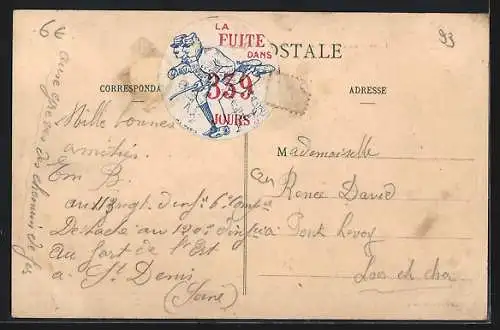 6€
93
LA
FUITE
DANS
839
JOURS
OSTALE
CORRESPONDA
ADRESSE
Mille bonnes
amitiés
Em B.
au 113 regt d'inf 6e Comp
Détaché au 120e d'inf
au fort de l'Est
à St Denis
(Seine)
des chemins de fer
Mademoiselle
Renée David
Pont Levoy
Loir et cher